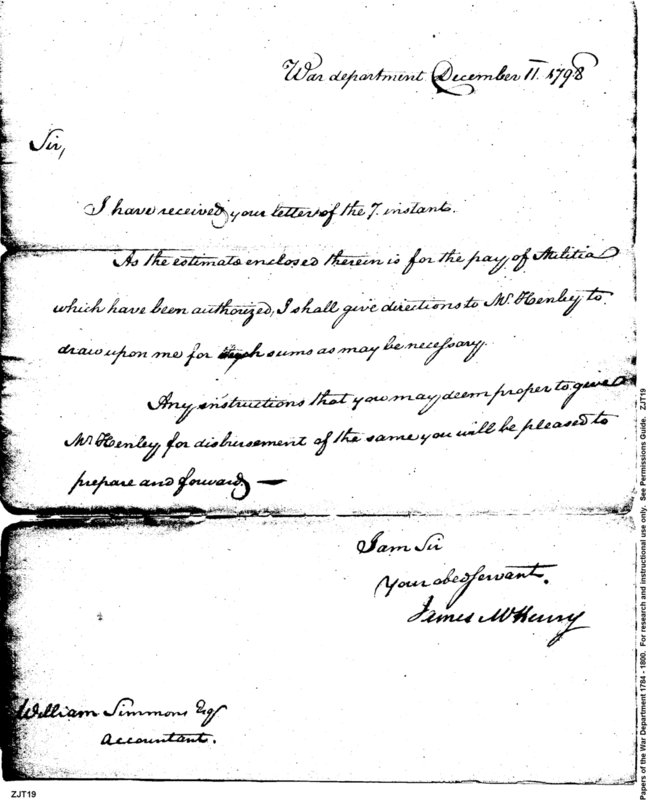 War department December 11. 1798
Sir,
I have received your letter of the 7. instant.
As the estimate enclosed therein is for the pay of Militia
which have been authorized, I shall give directions to Mr. Henley to
draw upon me for such sums as may be necessary.
Any instructions that you may deem proper to give
Mr Henley for disbursement of the same you will be pleased to
prepare and forward —
I am Sir
Your obed servant.
James McHenry
William Simmons Esq
Accountant.
ZJT19
Papers of the War Department 1784 - 1800. For research and instructional use only. See Permissions Guide. ZJT19